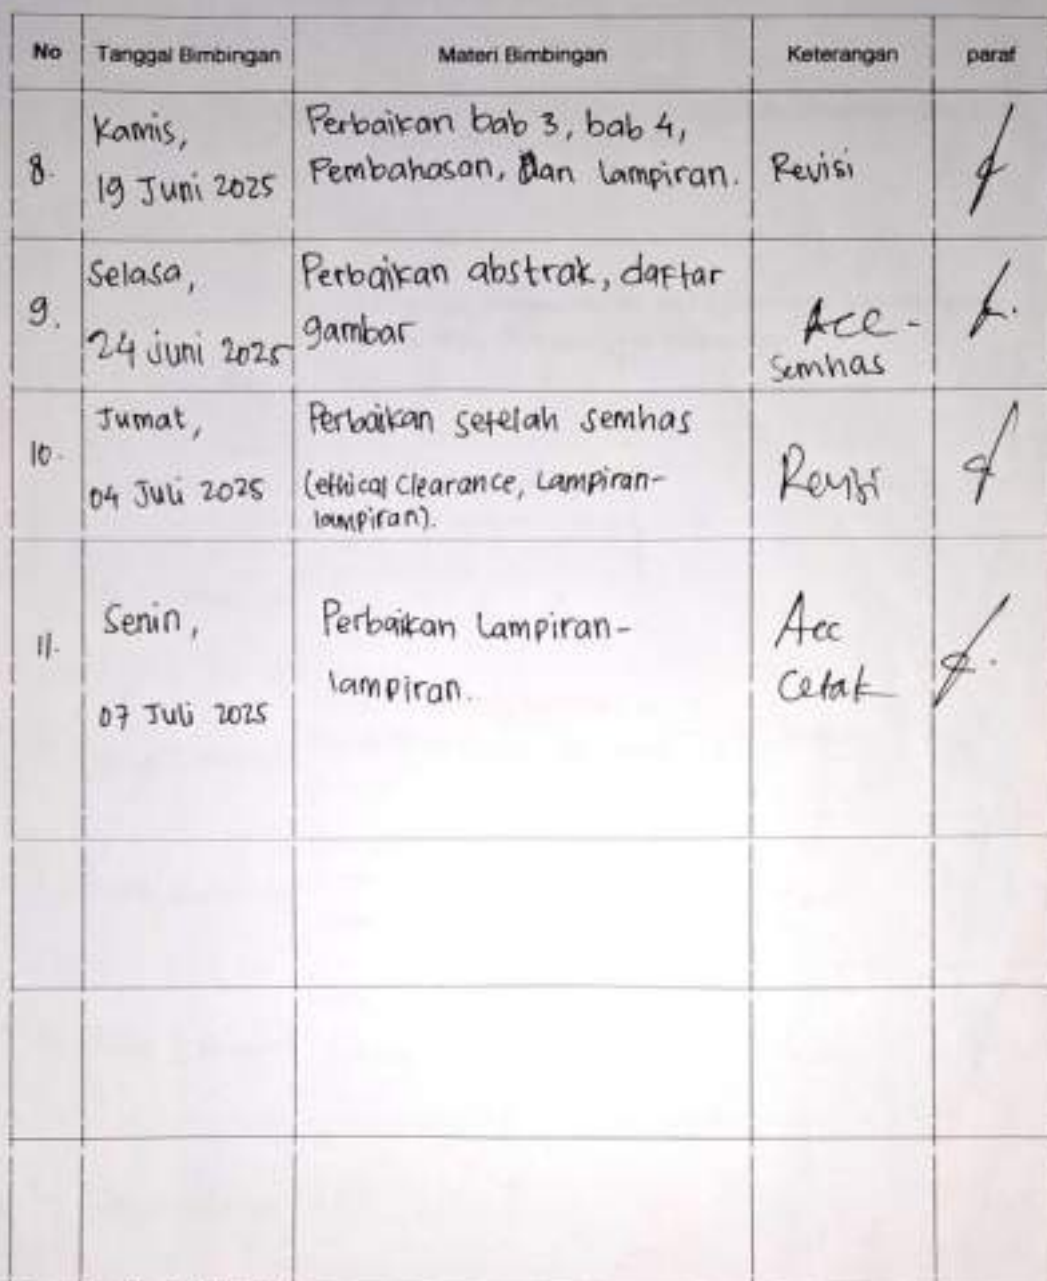 No Tanggal Bimbingan Materi Bimbingan Keterangan paraf
8. Kamis, 19 Juni 2025 Perbaikan bab 3, bab 4, Pembahasan, Dan lampiran. Revisi
9. Selasa, 24 juni 2025 Perbaikan abstrak, daftar gambar Acc - Semhas
10. Jumat, 04 Juli 2025 Perbaikan setelah semhas (ethical Clearance, Lampiran-lampiran). Revisi
11. Senin, 07 Juli 2025 Perbaikan Lampiran-lampiran. Acc Cetak